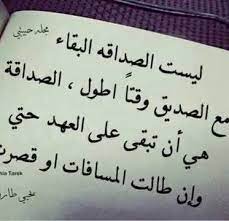 مجله حبيبتي
ليست الصداقه البقاء
مع الصديق وقتاً اطول ، الصداقة
هي أن تبقى على العهد حتي
وإن طالت المسافات او قصرت
hia Tarek